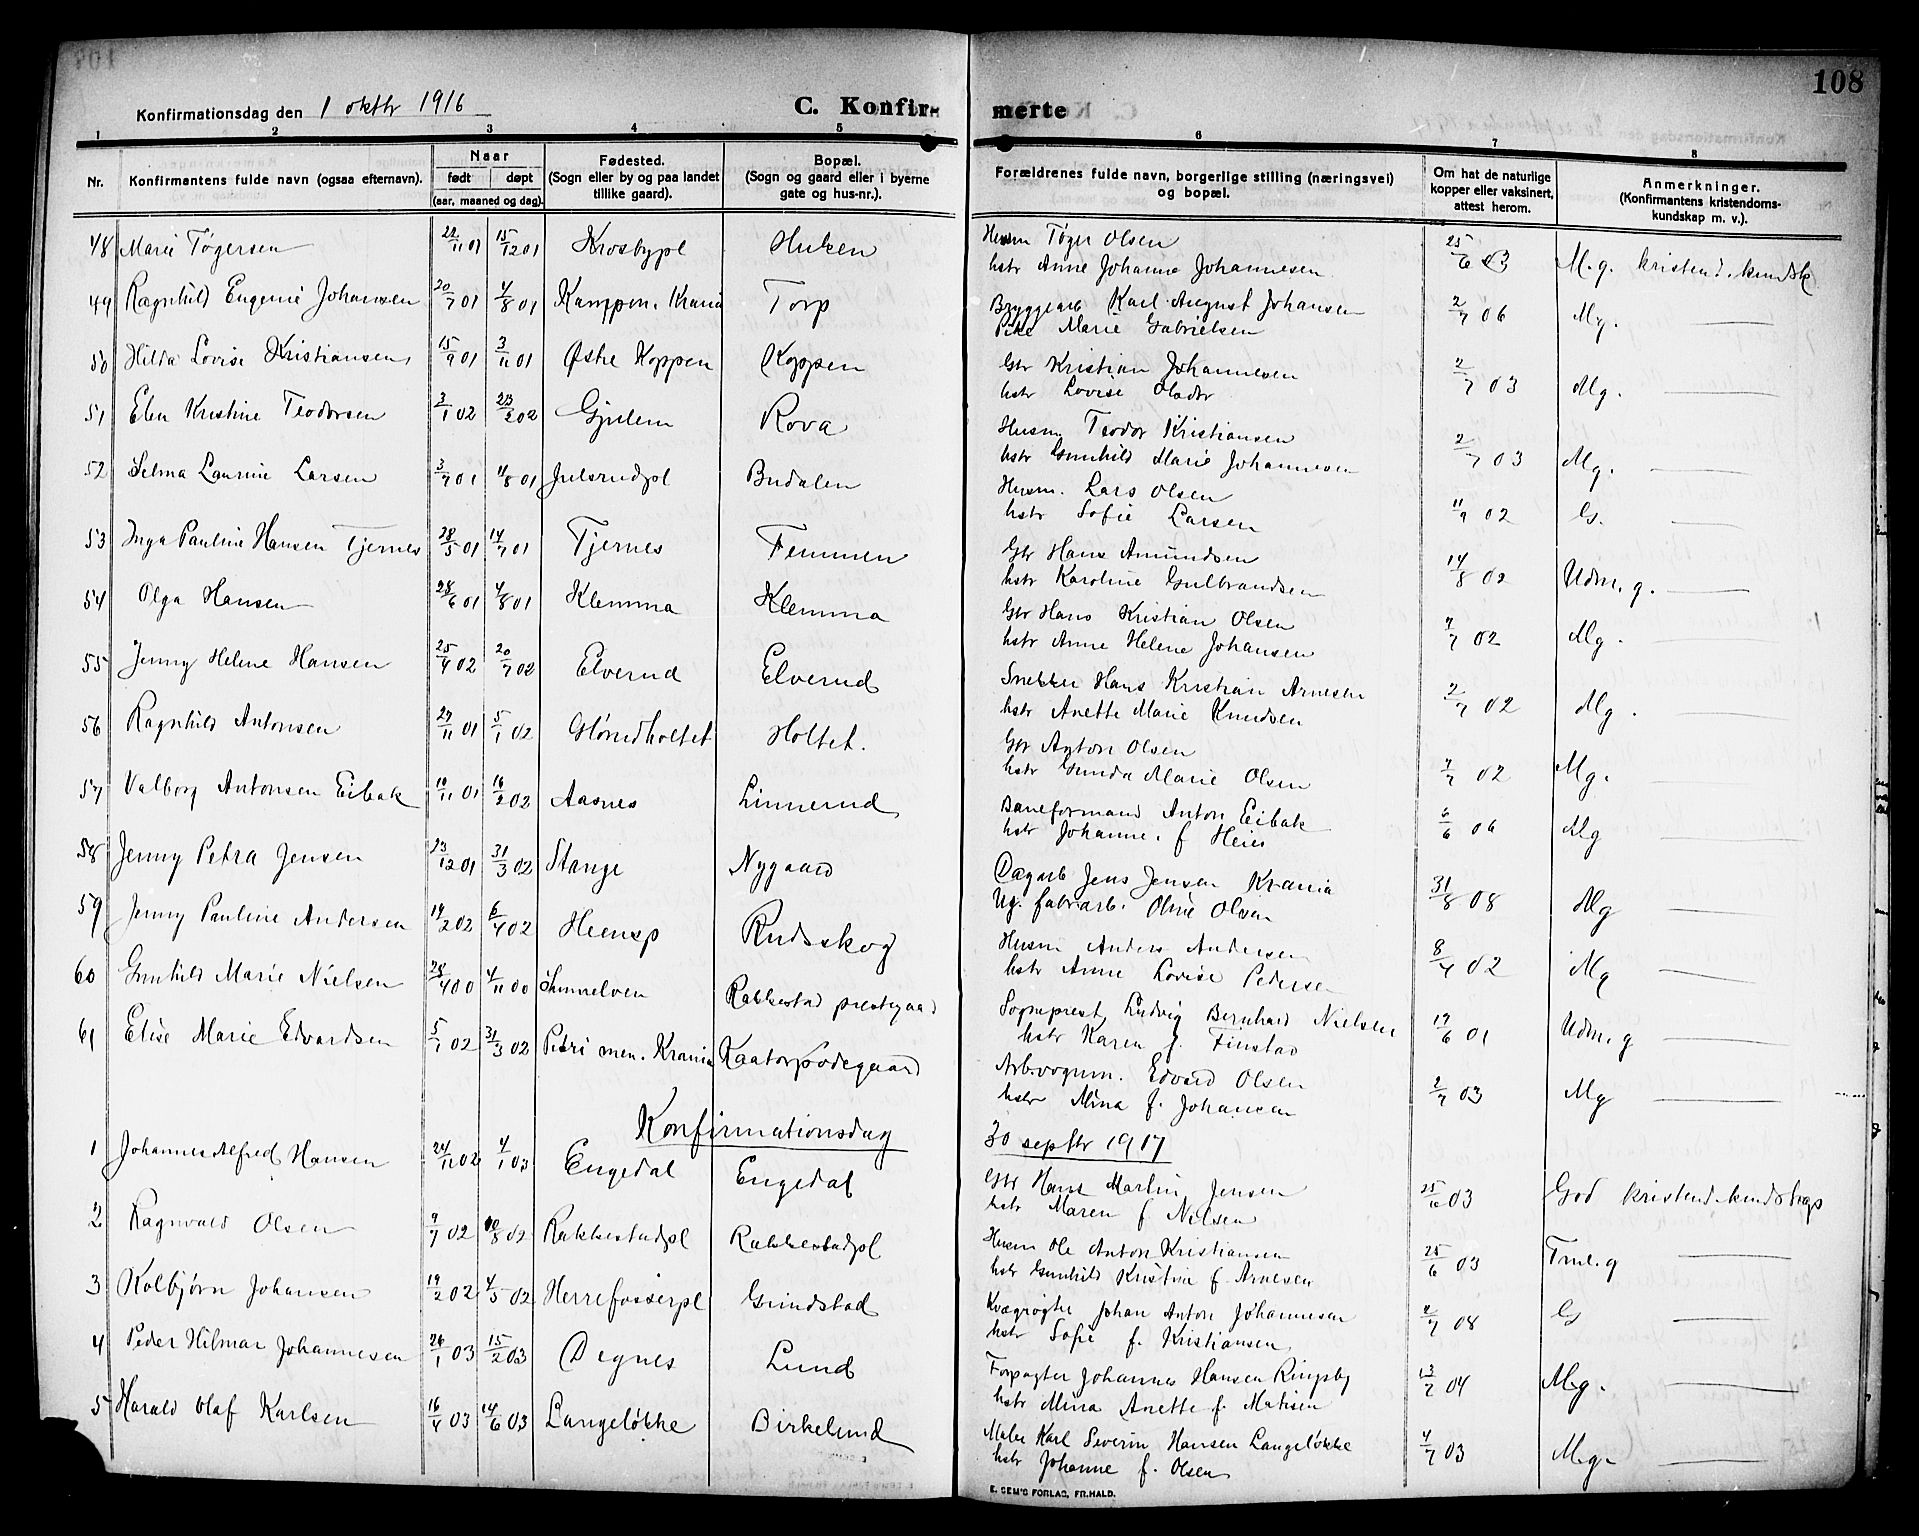 108
Konfirmationsdag den 1 oktbr 1916 C. Konfir- merte
1 2 3 4 5 6 7 8
Nr. Konfirmantens fulde navn (ogsaa efternavn). Naar født døpt (aar, maaned og dag). Fødested. (Sogn eller by og paa landet tillike gaard). Bopæl. (Sogn og gaard eller i byerne gate og hus-nr.). Forældrenes fulde navn, borgerlige stilling (næringsvei) og bopæl. Om hat de naturlige kopper eller vaksinert, attest herom. Anmerkninger. (Konfirmantens kristendoms- kundskap m. v.).
48 Marie Tøgersen 15/12 01 Krosbypl Huken Husm Tøger Olsen
hstr Anne Johanne Johannesen 25/6 03 M.g. kristend. kundsk
49 Ragnhild Eugenie Johansen 20/7 01 4/8 01 Kampen. Krania Torp Bryggearb Karl August Johansen
Pike Marie Gabrielsen 2/7 06 Mg.
50 Hilda Lovise Kristiansen 15/9 01 3/11 01 Østre Koppen Koppen Gbr Kristian Johannesen
hstr Lovise Olsdtr 2/7 03 Mg.
51 Elen Kristine Teodorsen 3/1 02 23/2 02 Gjulem Rova Husm. Teodor Kristiansen
hstr Gunhild Marie Johannesen 2/7 03 Mg.
52 Selma Laurine Larsen 3/7 01 4/8 01 Julsrudpl Budalen Husm. Lars Olsen
hstr Sofie Larsen 11/9 02 G.
53 Inga Pauline Hansen Tjernes 28/5 01 14/7 01 Tjernes Femmen Gbr Hans Amundsen
hstr Karoline Gulbrandsen 14/8 02 Udm. g.
54 Olga Hansen 28/6 01 4/8 01 Klemma Klemma Gbr Hans Kristian Olsen
hstr Anne Helene Johansen 7/7 02 Mg.
55 Jenny Helene Hansen 25/4 02 20/7 02 Elverud Elverud Snekker Hans Kristian Arnesen
hstr Anette Marie Knudsen 2/7 02 Mg.
56 Ragnhild Antonsen 27/11 01 5/1 02 Glørudholtet Holtet. Gbr Anton Olsen
hstr Gunda Marie Olsen 7/7 02 Mg.
57 Valborg Antonsen Eibak 10/11 01 16/2 02 Aasnes Linnerud Baneformand Anton Eibak
hstr Johanne. f Heier 6/6 06 Mg
58 Jenny Petra Jensen 23/12 01 31/3 02 Stange Nygaard Dagarb Jens Jensen Krania
Ug. fabrarb. Oline Olsen 31/8 08 Mg
59 Jenny Pauline Andersen 14/2 02 6/4 02 Heensp Rudsskog Husm Anders Andersen
hstr Anne Lovise Pedersen 8/4 02 Mg
60 Gunhild Marie Nielsen 28/4 00 4/11 00 Rakkestad prestegaard Sogneprest Ludvig Bernhard Nielsen
hstr Karen f. Finstad 19/6 01 Udm. g
61 Elise Marie Edvardsen 5/1 02 31/3 02 Petri men. Krania Kaatorpødegaard Arb.vognm. Edvard Olsen
hstr Mina f. Johansen 2/7 03 Mg
Konfirmationsdag 30 septbr 1917
1 Johannes Alfred Hansen 24/11 02 4/1 03 Engedal Engedal Gbr Hans Martin Jensen
hstr Maren f Nilsen 25/6 03 God kristend. kundskap
2 Ragnvald Olsen 9/7 02 10/8 02 Rakkestadpl Rakkestadpl Husm Ole Anton Kristiansen
hstr Gunhild Kristine f. Arnesen 25/6 03 Tml. g
3 Kolbjørn Johansen 19/2 02 4/5 02 Herrefosserpl Grindstad Kvægrøgter Johan Anton Johannesen
hstr Sofie f. Kristiansen 2/7 08 G
4 Peder Hilmar Johannesen 26/1 03 15/2 03 Degnes Lund Forpagter Johannes Hansen Ringsby
hstr Mina Anette f. Matisen 13/7 04 M.g.
5 Harald Olaf Karlsen 16/4 03 14/6 03 Langeløkke Birkelund Maler Karl Severin Hansen Langeløkke
hstr Johanne f. Olsen 4/7 03 M.g.
E. SEM'S FORLAG, FR.HALD.